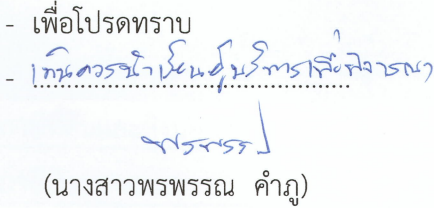 - เพื่อโปรดทราบ
- เห็นควรนำเรียนผู้บริหารเพื่อพิจารณา
พรพรรณ
(นางสาวพรพรรณ คำภู)